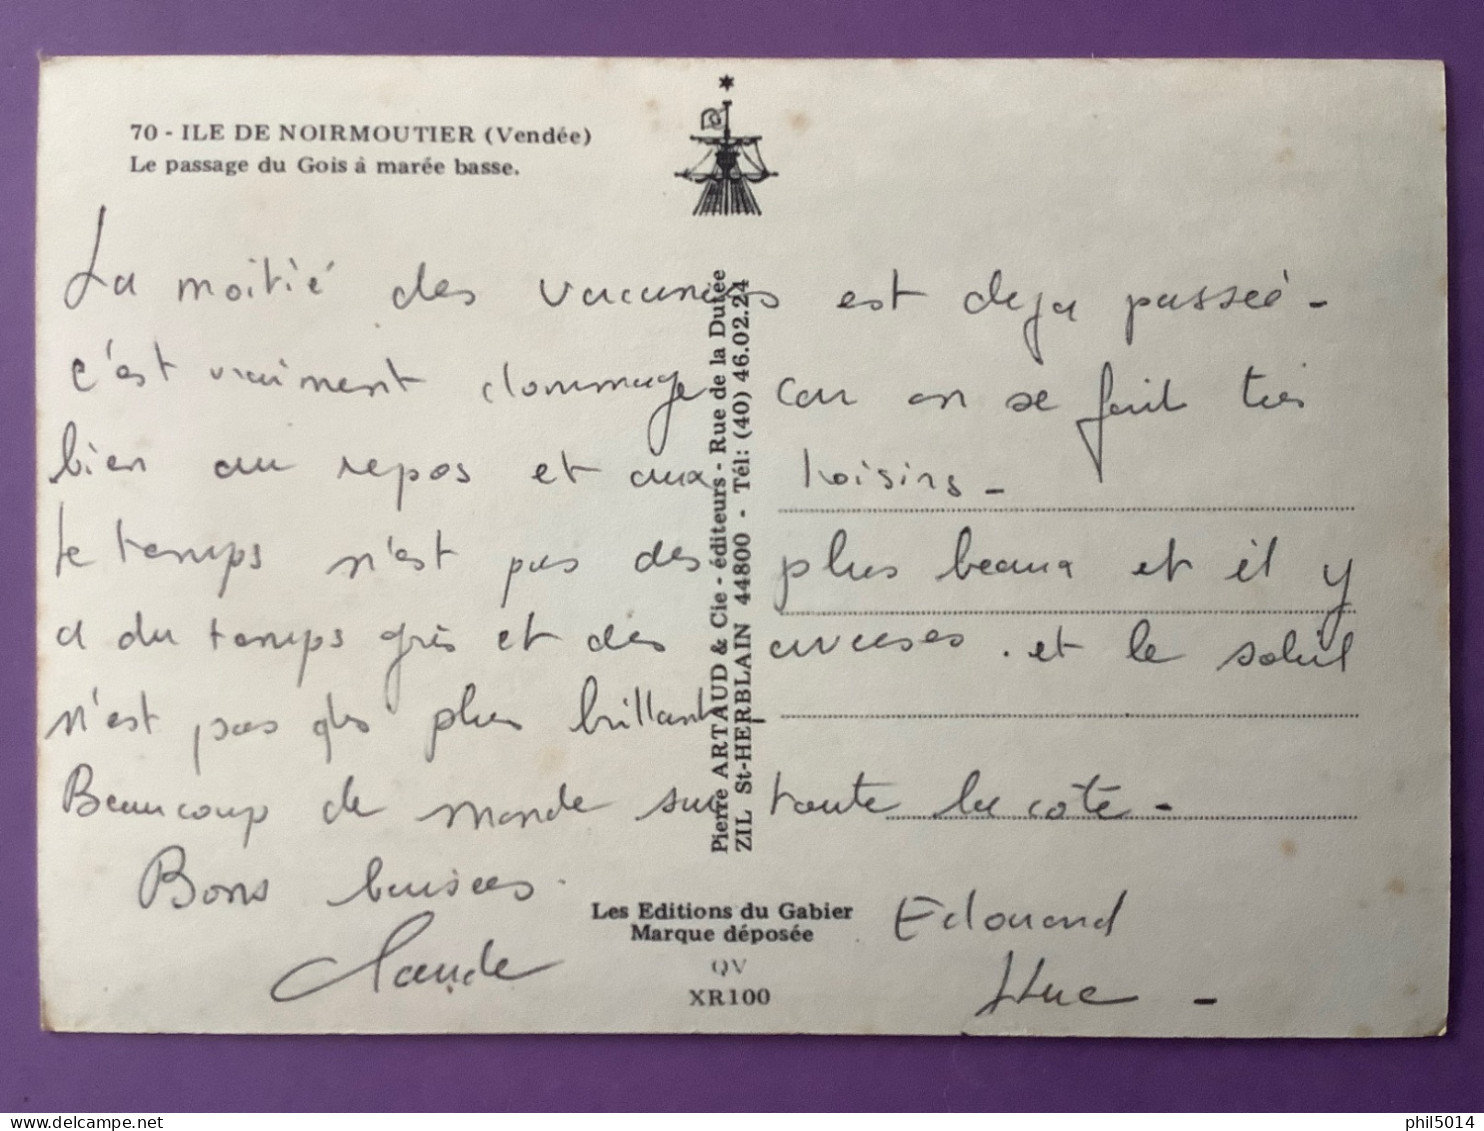 70 - ILE DE NOIRMOUTIER (Vendée)
Le passage du Gois à marée basse.
La moitié des vacances est deja passeé -
c'est vraiment dommage car on se fait très
bien au repos et aux loisirs -
Le temps n'est pas des plus beaux et il y
a du temps gris et des averses . et le soleil
n'est pas des plus brillant -
Beaucoup de monde sur toute la cote -
Bons baisers.
Claude
Edouard
Luc -
Pierre ARTAUD & Cie - éditeurs - Rue de la Dutée
ZIL St-HERBLAIN 44800 - Tél: (40) 46.02.24
Les Editions du Gabier
Marque déposée
QV
XR100
delcampe.net
phil5014